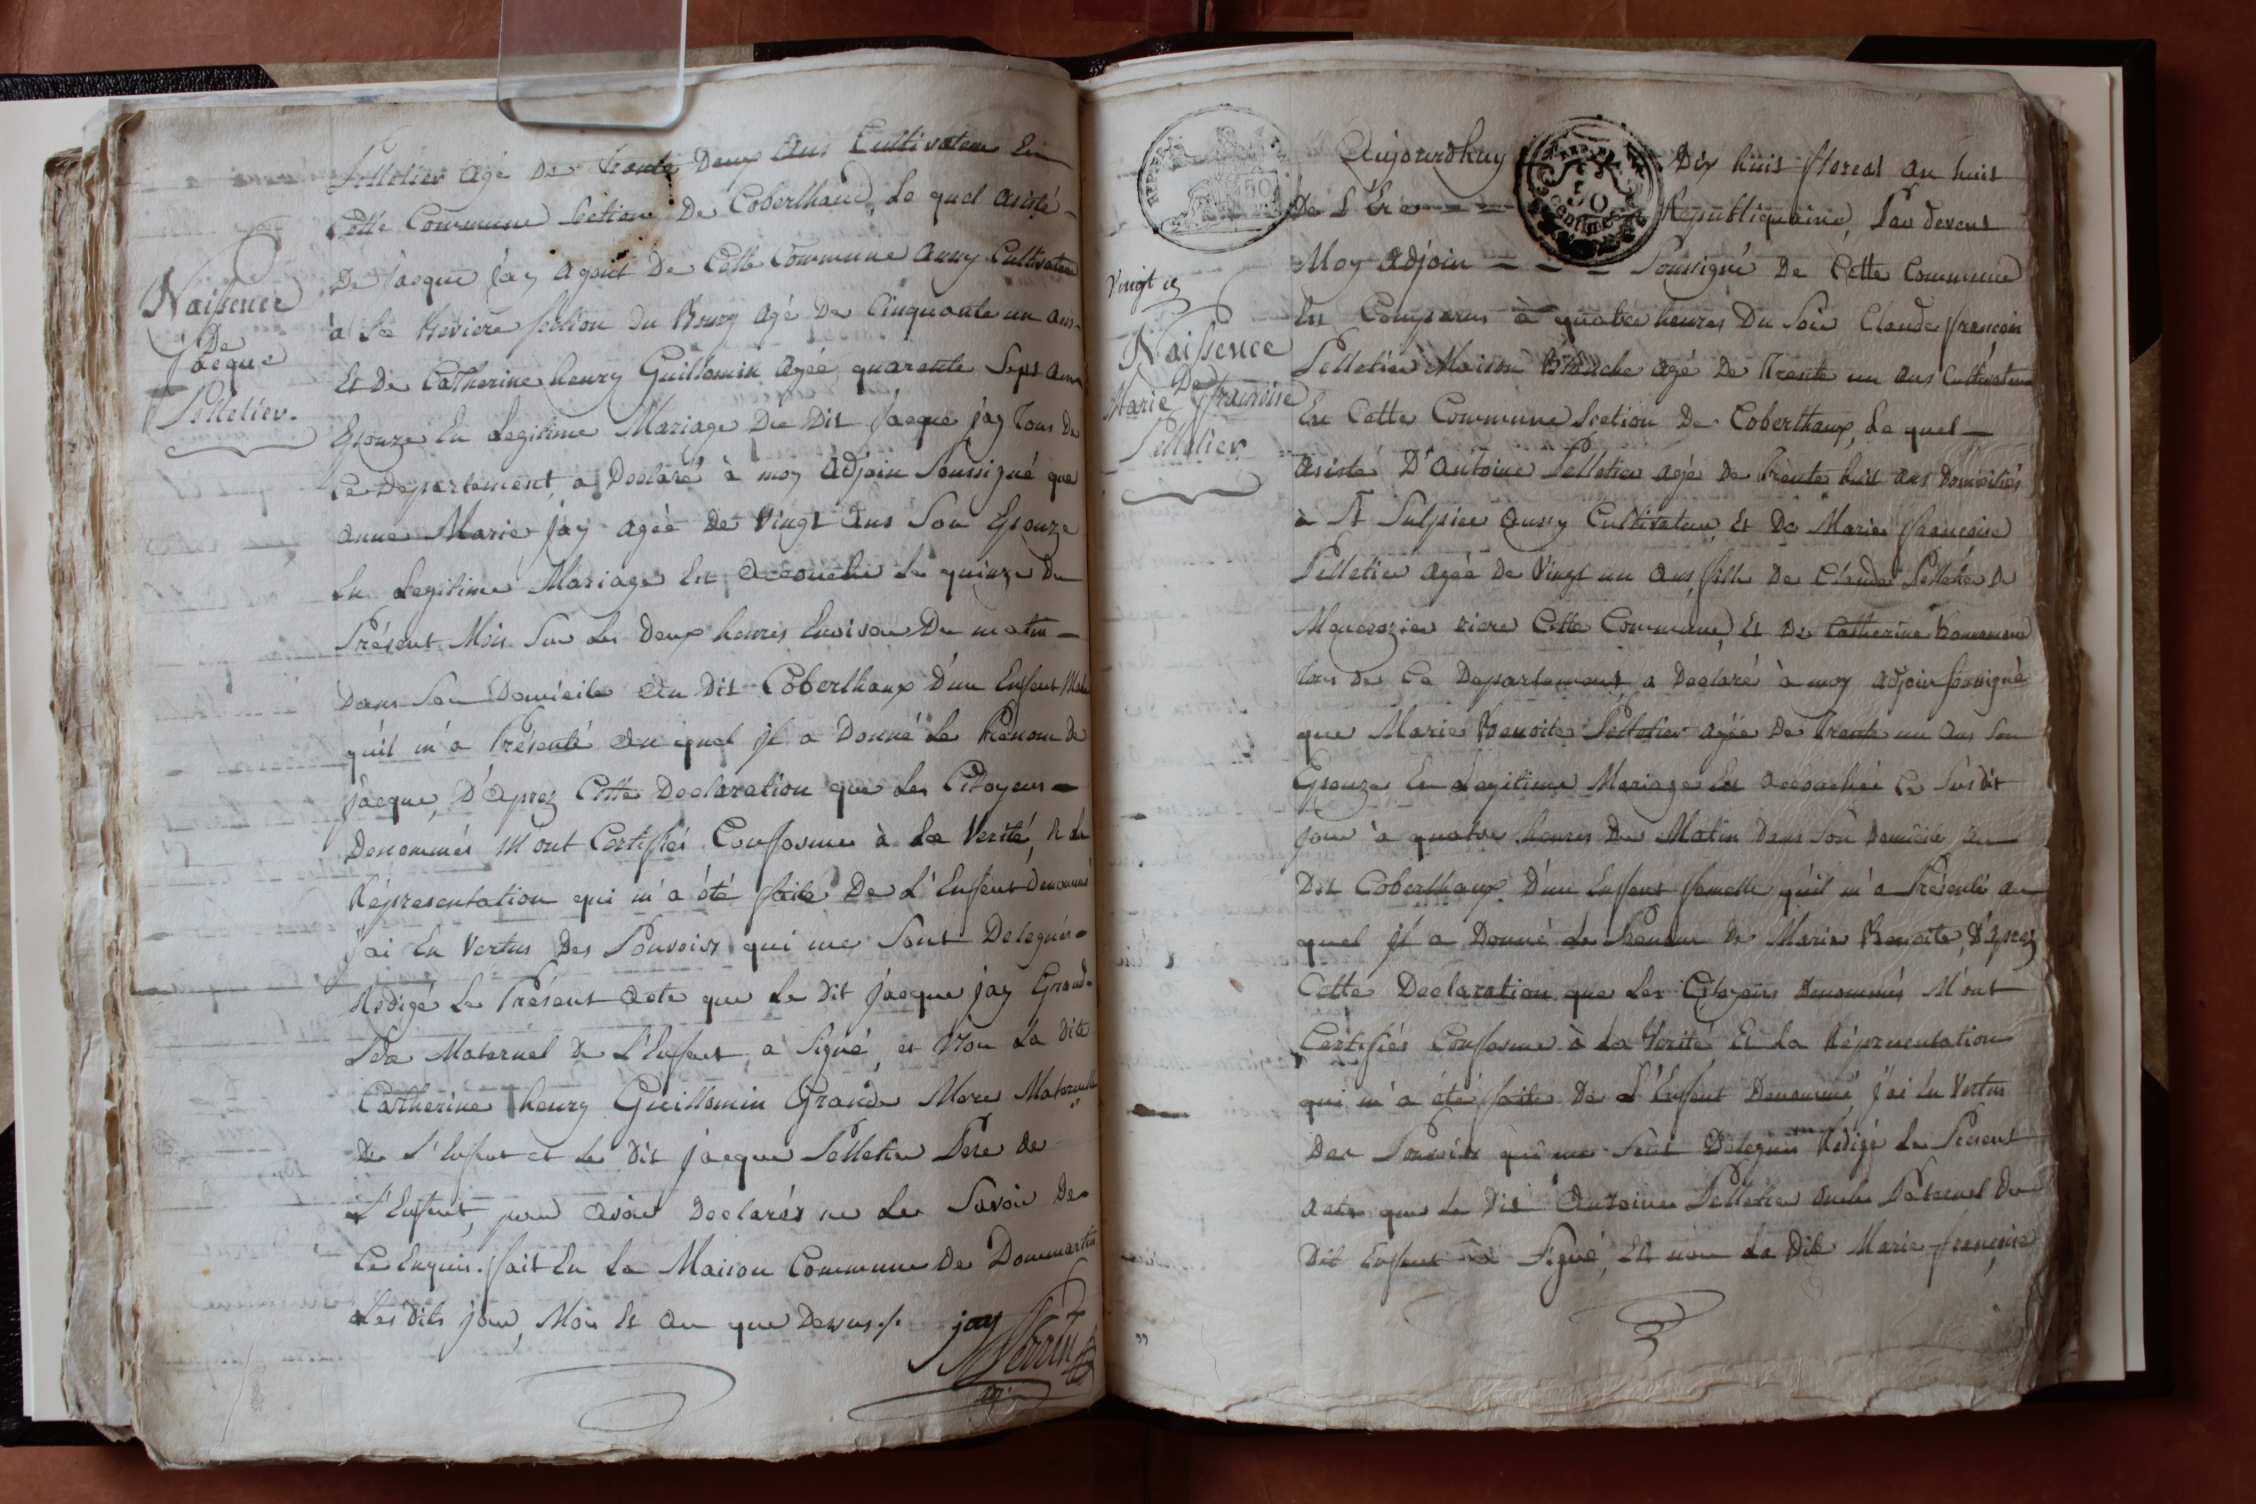 Pelletier agé De trente Deux ans Cultivateur En
Cette Commune Section De Coberthaud, Le quel assisté
De jacque jay agent De Cette Commune aussy Cultivateur
à La Riviere section Du Bourg agé De Cinquante un ans
Et De Catherine henry Guillomin agée quarente Sept ans
Epouze En Legitime Mariage Du Dit jacque jay Tous De
Ce Departement, a Declaré à moy adjoin Soussigné que
anne Marie jay agée De Vingt ans Son Epouze
En Legitime Mariage Est accouchée Le quinze Du
Présent Mois Sur Les Deux heures Environ Du matin
Dans Son Domicile Au Dit Coberthoux D'un Enfent Male
qu'il m'a Présenté Au quel jl a Donné Le Prénom De
jacque, D'aprez Cette Declaration que Les Citoyens
Denommés M'ont Certifiés Conforme à La Verité, & La
Répresentation qui m'a été faite De L'Enfent Denommé
j'ai En Vertus Des Pouvoirs qui me Sont Delegués
Redigé Le Présent acte que Le Dit jacque jay Grand
Pere Maternel De L'Enfent, a Signé, et Non La Dite
Catherine henry Guillomin Grande Mere Maternelle
De L'Enfent et Le Dit jacque Pelletier Pere De
L'Enfent, pour avoir Declarés ne Le Savoir De
Ce Enquis. fait En La Maison Commune De Dommartin
Les Dits jour, Mois Et an que Dessus ./. jay
Perrin
Naissence
De
jacque
Pelletier.
Aujourdhuy Dix huit floreal an huit
De L'Ere Republiquaine, Par devent
Moy adjoin Soussigné De Cette Commune
Est Comparus à quatre heures Du Soir Claude françois
Pelletier Maison Blanche agé De Trente un ans Cultivateur
En Cette Commune Section De Coberthoux, Le quel
assisté D'Antoine Pelletier agé De trente huit ans Domicilié
à St Sulpice aussy Cultivateur, Et De Marie françoise
Pelletier agée De Vingt un ans fille De Claude Pelletier De
riere Cette Commune, Et De Catherine
Tous De Ce Departement, a Declaré à moy adjoin soussigné
que Marie Benoite Pelletier agée De Trente un ans Son
Epouze En Legitime Mariage Est accouchée Ce Sus dit
jour à quatre heures Du Matin Dans Son Domicile au
Dit Coberthoux D'un Enfent femelle qu'il m'a Présenté au
quel jl a Donné Le Prénom De Marie Benoite, D'aprez
Cette Declaration que Les Citoyens Denommés M'ont
Certifiés Conforme à La Verité Et La Répresentation
qui m'a été faite De L'Enfent Denommé, j'ai En Vertus
Des Pouvoirs qui me Sont Delegués Redigé Le Présent
acte que Le Dit Antoine Pelletier oncle Paternel Du
Dit Enfent a Signé, Et non La Dite Marie françoise
Vingt
Naissence
De
Marie françoise
Pelletier
50
Centimes